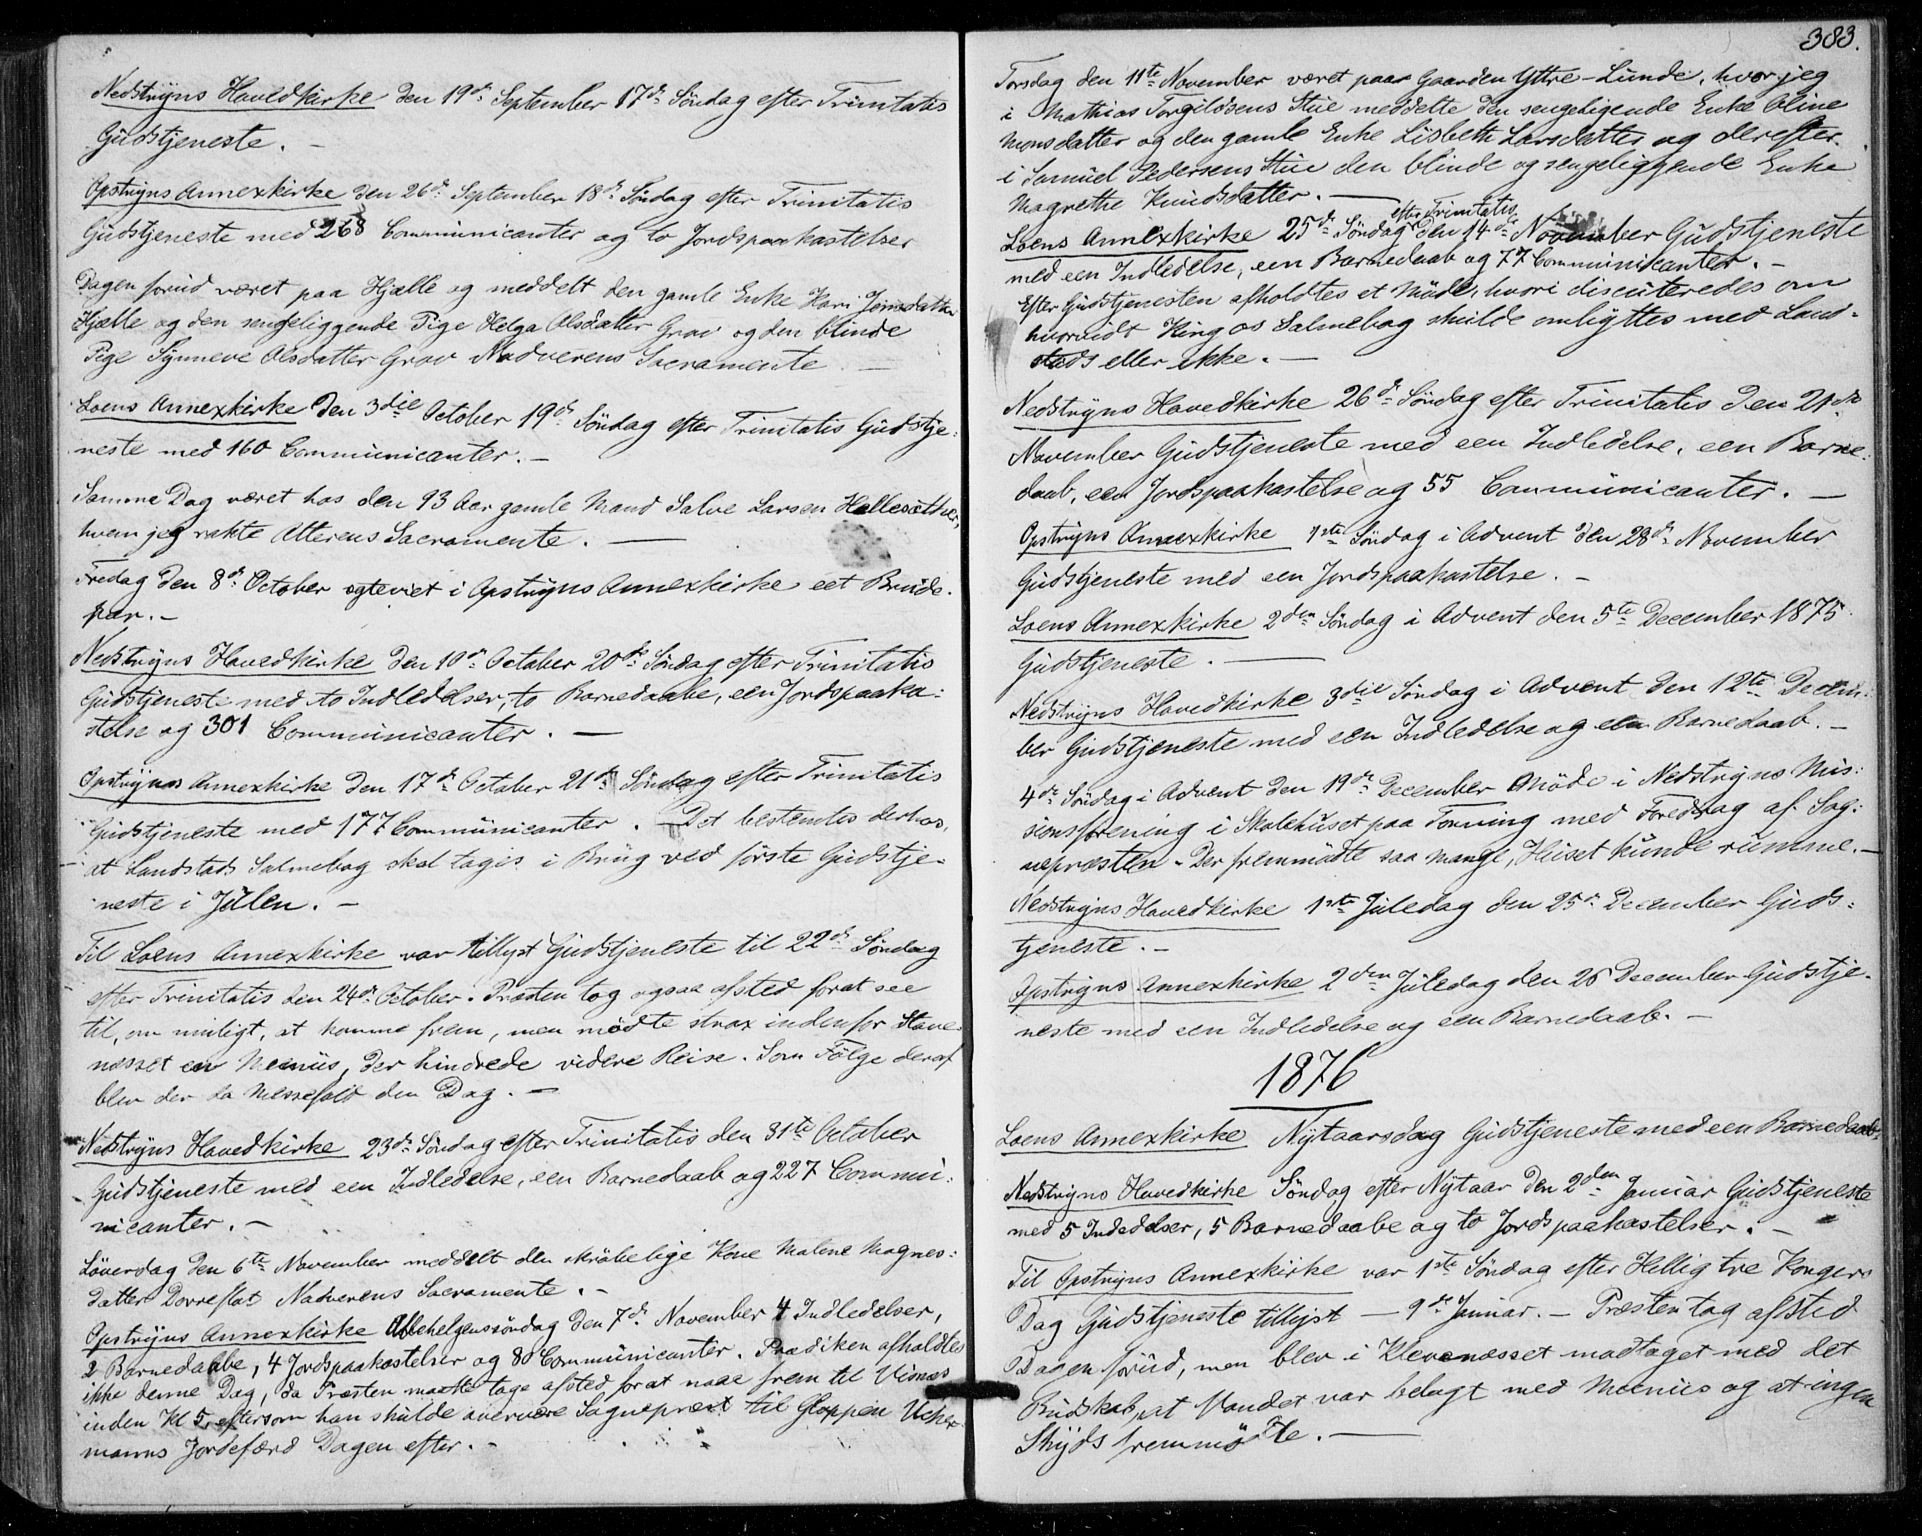 Nedstryns Hovedkirke den 19de September 17de Søndag efter Trinitatis
Gudstjeneste. –
Opstryns Annexkirke den 26de September 18de Søndag efter Trinitatis
Gudstjeneste med 268 Communicanter og to Jordspaakastelser
Dagen forud været paa Hjelle og meddelt den gamle Enke Kari Jonsdatter
Hjelle og den sengeliggende Pige Helga Olsdatter Grov og den blinde
Pige Synneve Olsdatter Grov Nadverens Sacramente. –
Loens Annexkirke den 3die October 19de Søndag efter Trinitatis Gudstje:
neste med 160 Communicanter. –
Samme Dag været hos den 93 Aar gamle Mand Salve Larsen Hellesæther,
hvem jeg rakte Alterens Sacramente. —
Fredag den 8de October egteviet i Opstryns Annexkirke eet Brude:
par. –
Nedstryns Hovedkirke den 10de October 20de Søndag efter Trinitatis
Gudstjeneste med to Indledelser, to Barnedaabe, een Jordspaaka:
stelse og 301 Communicanter. —
Opstryns Annexkirke den 17de October 21de Søndag efter Trinitatis
Gudstjeneste med 177 Communicanter. – Det bestemtes derhos,
at Landstads Salmebog skal tages i Brug ved første Gudstje-
neste i Julen. –
Til Loens Annexkirke var tillyst Gudstjeneste til 22de Søndag
efter Trinitatis den 24de October. Præsten tog ogsaa afsted forat see
til, om muligt, at komme frem, men mødte strax indenfor Stave-
næsset en Meeniis, der hindrede videre Reise. Som Følge deraf
blev der da Messefald den Dag. –
Nedstryns Hovedkirke 23de Søndag efter Trinitatis den 31te October
Gudstjeneste med een Indledelse, een Barnedaab og 227 Commu:
nicanter. –
Løverdag den 6te November meddelt den skrøbelige Kone Malene Magnes:
datter Dovreflot Nadverens Sacramente. –
Opstryns Annexkirke Allehelgenssøndag den 7de November 4 Indledelser,
2 Barnedaabe, 4 Jordspaakastelser og 80 Communicanter. Prædiken afholdtes
ikke denne Dag, da Præsten maatte tage afsted forat naae frem til Visnæs
inden Kl 5, eftersom han skulde overvære Sognepræst til Gloppen Ucher-
manns Jordefærd Dagen efter. –
383.
Torsdag den 11te November været paa Gaarden Yttre-Lunde, hvor jeg
i Mathias Torgildsens Stue meddelte den sengeliggende Enke Oline
Monsdatter og den gamle Enke Lisbeth Larsdatter og derefter
i Samuel Pedersens Stue den blinde og sengeliggende Enke
Magrethe Knudsdatter. —
Loens Annexkirke 25de Søndag efter Trinitatis den 14de November Gudstjeneste
med een Indledelse, een Barnedaab og 77 Communicanter. –
Efter Gudstjenesten afholdtes et Møde, hvori discuteredes om
hvorvidt Kingos Salmebog skulde ombyttes med Land-
stads eller ikke. —
Nedstryns Hovedkirke 26de Søndag efter Trinitatis den 21de
November Gudstjeneste med een Indledelse, een Barne:
daab, een Jordspaakastelse og 55 Communicanter. —
Opstryns Annexkirke 1ste Søndag i Advent den 28de November
Gudstjeneste med een Jordspaakastelse. –
Loens Annexkirke 2den Søndag i Advent den 5te December 1875
Gudstjeneste. —
Nedstryns Hovedkirke 3die Søndag i Advent den 12te Decem:
ber Gudstjeneste med een Indledelse og een Barnedaab. –
4de Søndag i Advent den 19de December Møde i Nedstryns Mis:
sionsforening i Skolehuset paa Tonning med Foredrag af Sog:
nepræsten. Der fremmødte saa mange, Huset kunde rumme. –
Nedstryns Hovedkirke 1ste Juledag den 25de December Guds:
tjeneste. –
Opstryns Annexkirke 2den Juledag den 26 December Gudstje-
neste med een Indledelse og een Barnedaab. –
1876
Loens Annexkirke Nytaarsdag Gudstjeneste med een Barnedaab.
Nedstryns Hovedkirke Søndag efter Nytaar den 2den Januar Gudstjeneste
med 5 Indledelser, 5 Barnedaabe og to Jordspaakastelser. –
Til Opstryns Annexkirke var 1ste Søndag efter Hellig tre Kongers
Dag Gudstjeneste tillyst – 9de Januar. – Præsten tog afsted
Dagen forud, men blev i Klevenæsset modtaget med det
Budskab, at Vandet var belagt med Meeniis og at ingen
Skyds fremmødte. —